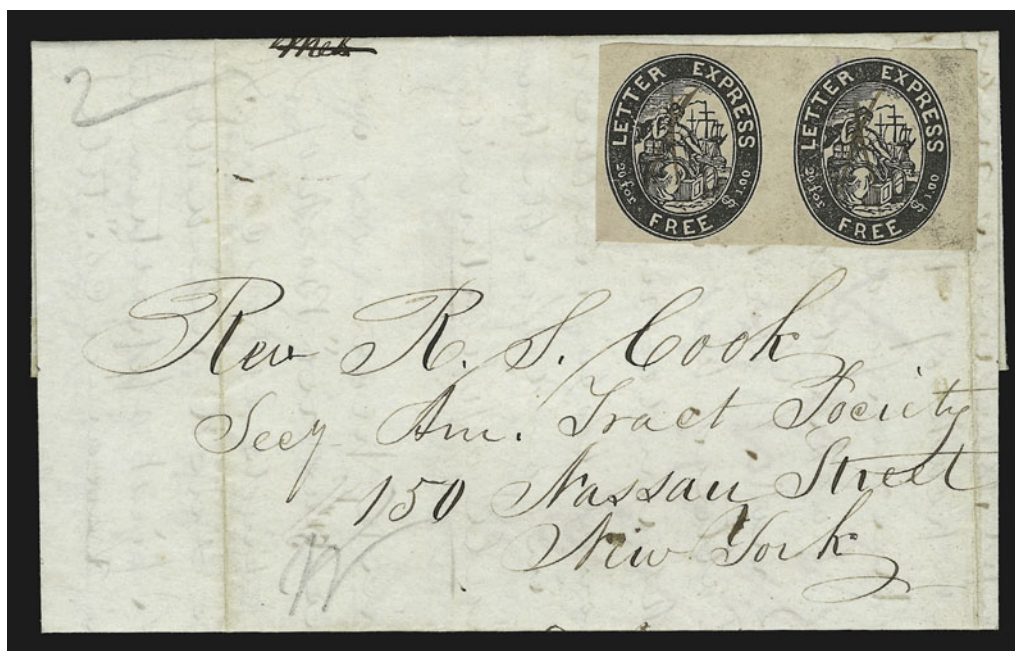 2
LETTER EXPRESS
20 for FREE $1.00
LETTER EXPRESS
20 for FREE $1.00
Rev R. S. Cook
Secy Am. Tract Society
150 Nassau Street
New York